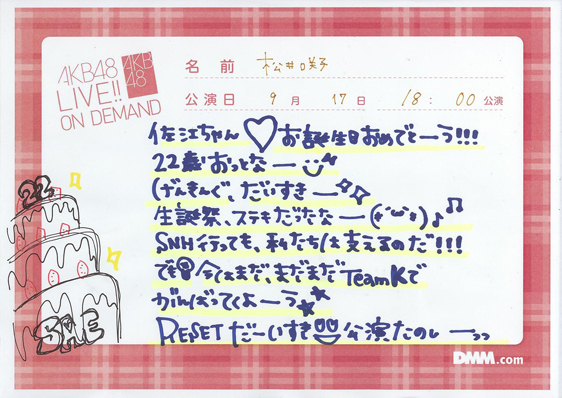 AKB48
LIVE!!
ON DEMAND
AKB
48
名前 松井咲子
公演日 9月 17日 18:00公演
佐江ちゃん♡お誕生日おめでとーう!!!
22歳おっとなー
げんきんぐ、だいすきー
生誕祭、ステキだったなー(*´ω`*)♪♫
SNH行っても、私たちは支えるのだ!!!
でも今はまだ、まだまだTeamKで
がんばってくよーう★★
RESETだーいすき 公演たのしーっっ
22
SAE
DMM.com